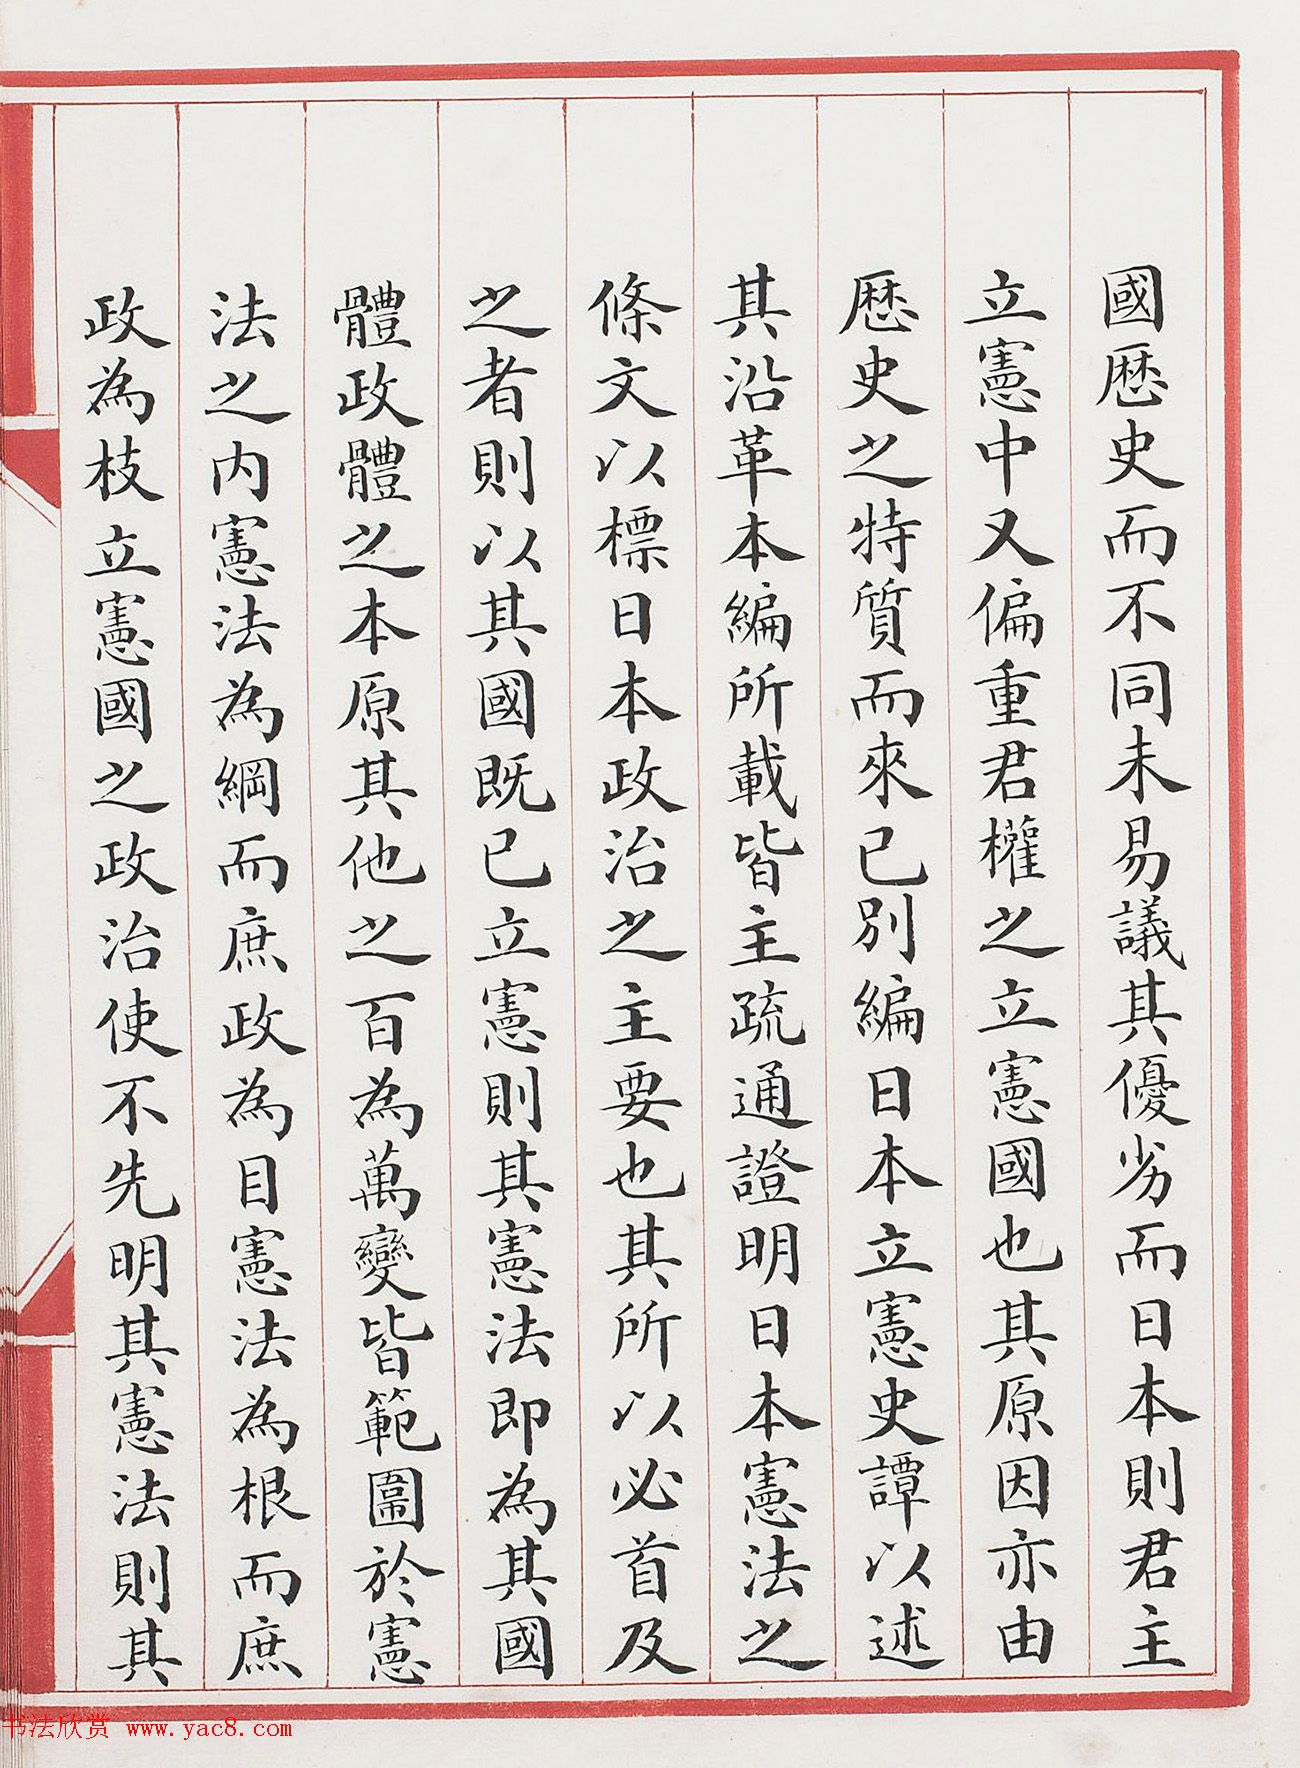 國歷史而不同未易議其優劣而日本則君主
立憲中又偏重君權之立憲國也其原因亦由
歷史之特質而來已別編日本立憲史譚以述
其沿革本編所載皆主疏通證明日本憲法之
條文以標日本政治之主要也其所以必首及
之者則以其國既已立憲則其憲法即為其國
體政體之本原其他之百為萬變皆範圍於憲
法之內憲法為綱而庶政為目憲法為根而庶
政為枝立憲國之政治使不先明其憲法則其
书法欣赏 www.yac8.com